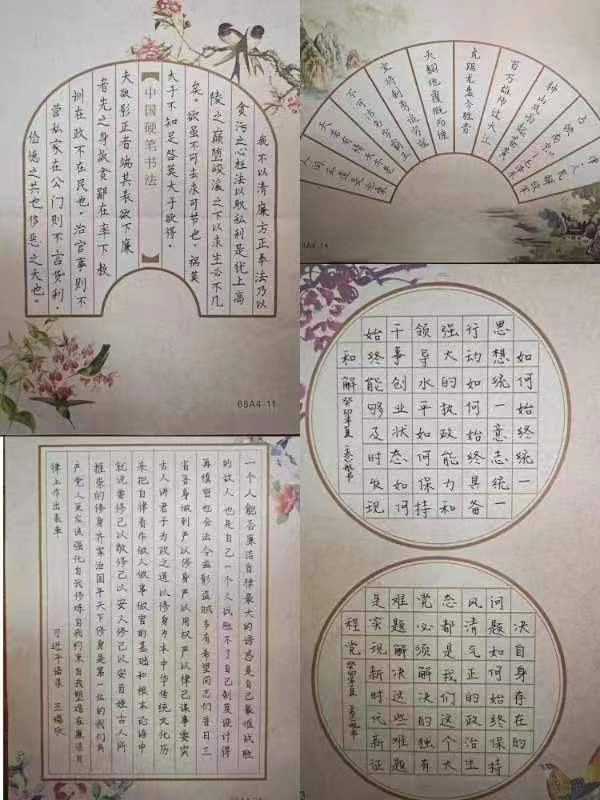 我不以清廉方正奉法乃以
贪污之心枉法以取私利是犹上高
陵之巅堕峻溪之下以求生必不几
矣。欲虽不可去求可节也。祸莫
大于不知足咎莫大于欲得。
【中国硬笔书法】
夫欲影正者端其表欲下廉
者先之身故贪鄙在率下教
训在政不在民也。治官事则不
营私家在公门则不言货利。
俭德之共也侈恶之大也。
68A4-11
人民解放军
钟山风雨起苍黄
百万雄师过大江
虎踞龙盘今胜昔
天翻地覆慨而慷
宜将剩勇追穷寇
不可沽名学霸王
天若有情天亦老
人间正道是沧桑
68A4-14
如何始终统一
思想统一意志统一
行动如何始终具备
强大的执政能力和
领导水平如何保持
干事创业状态如何
始终能够及时发现
和解
一个人能否廉洁自律最大的诱惑是自己最难战胜
的敌人也是自己一个人战胜不了自己制度设计得
再缜密也会法令滋彰盗贼多有希望同志们吾日三
省吾身做到严以修身严以用权严以律己谋事要实
古人讲君子为政之道以修身为本中华传统文化历
来把自律看作做人做事做官的基础和根本论语中
就说要修己以敬修己以安人修己以安百姓古人所
推崇的修身齐家治国平天下修身是第一位的我们共
产党人更应该强化自我修炼自我约束自我塑造在廉洁自
律上作出表率
习近平语录
决自身存在的
问题如何始终保持
风清气正的政治生
态都是我们这个大
党必须解决的独有
难题解决这些难题
是实现新时代新征
程党